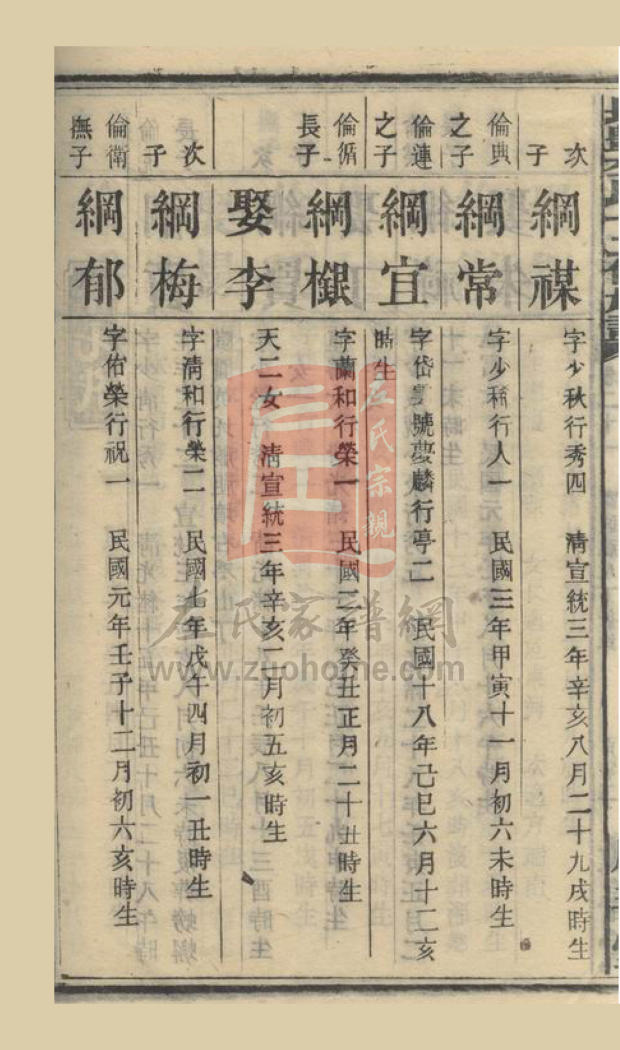 次子
綱禖
字少秋行秀四 清宣統三年辛亥八月二十九戌時生
倫典之子
綱常
字少稀行人一 民國三年甲寅十一月初六未時生
倫漣之子
綱宜
字岱雲號夢麟行亭二 民國十八年己巳六月十二亥
時生
倫循長子
綱
字蘭和行榮一 民國二年癸丑正月二十丑時生
娶李
天二女 清宣統三年辛亥二月初五亥時生
次子
綱梅
字清和行榮二 民國七年戊午四月初一丑時生
倫衛撫子
綱郁
字佑榮行祝一 民國元年壬子十二月初六亥時生
左氏宗親
左氏家譜網
www.zuohome.com